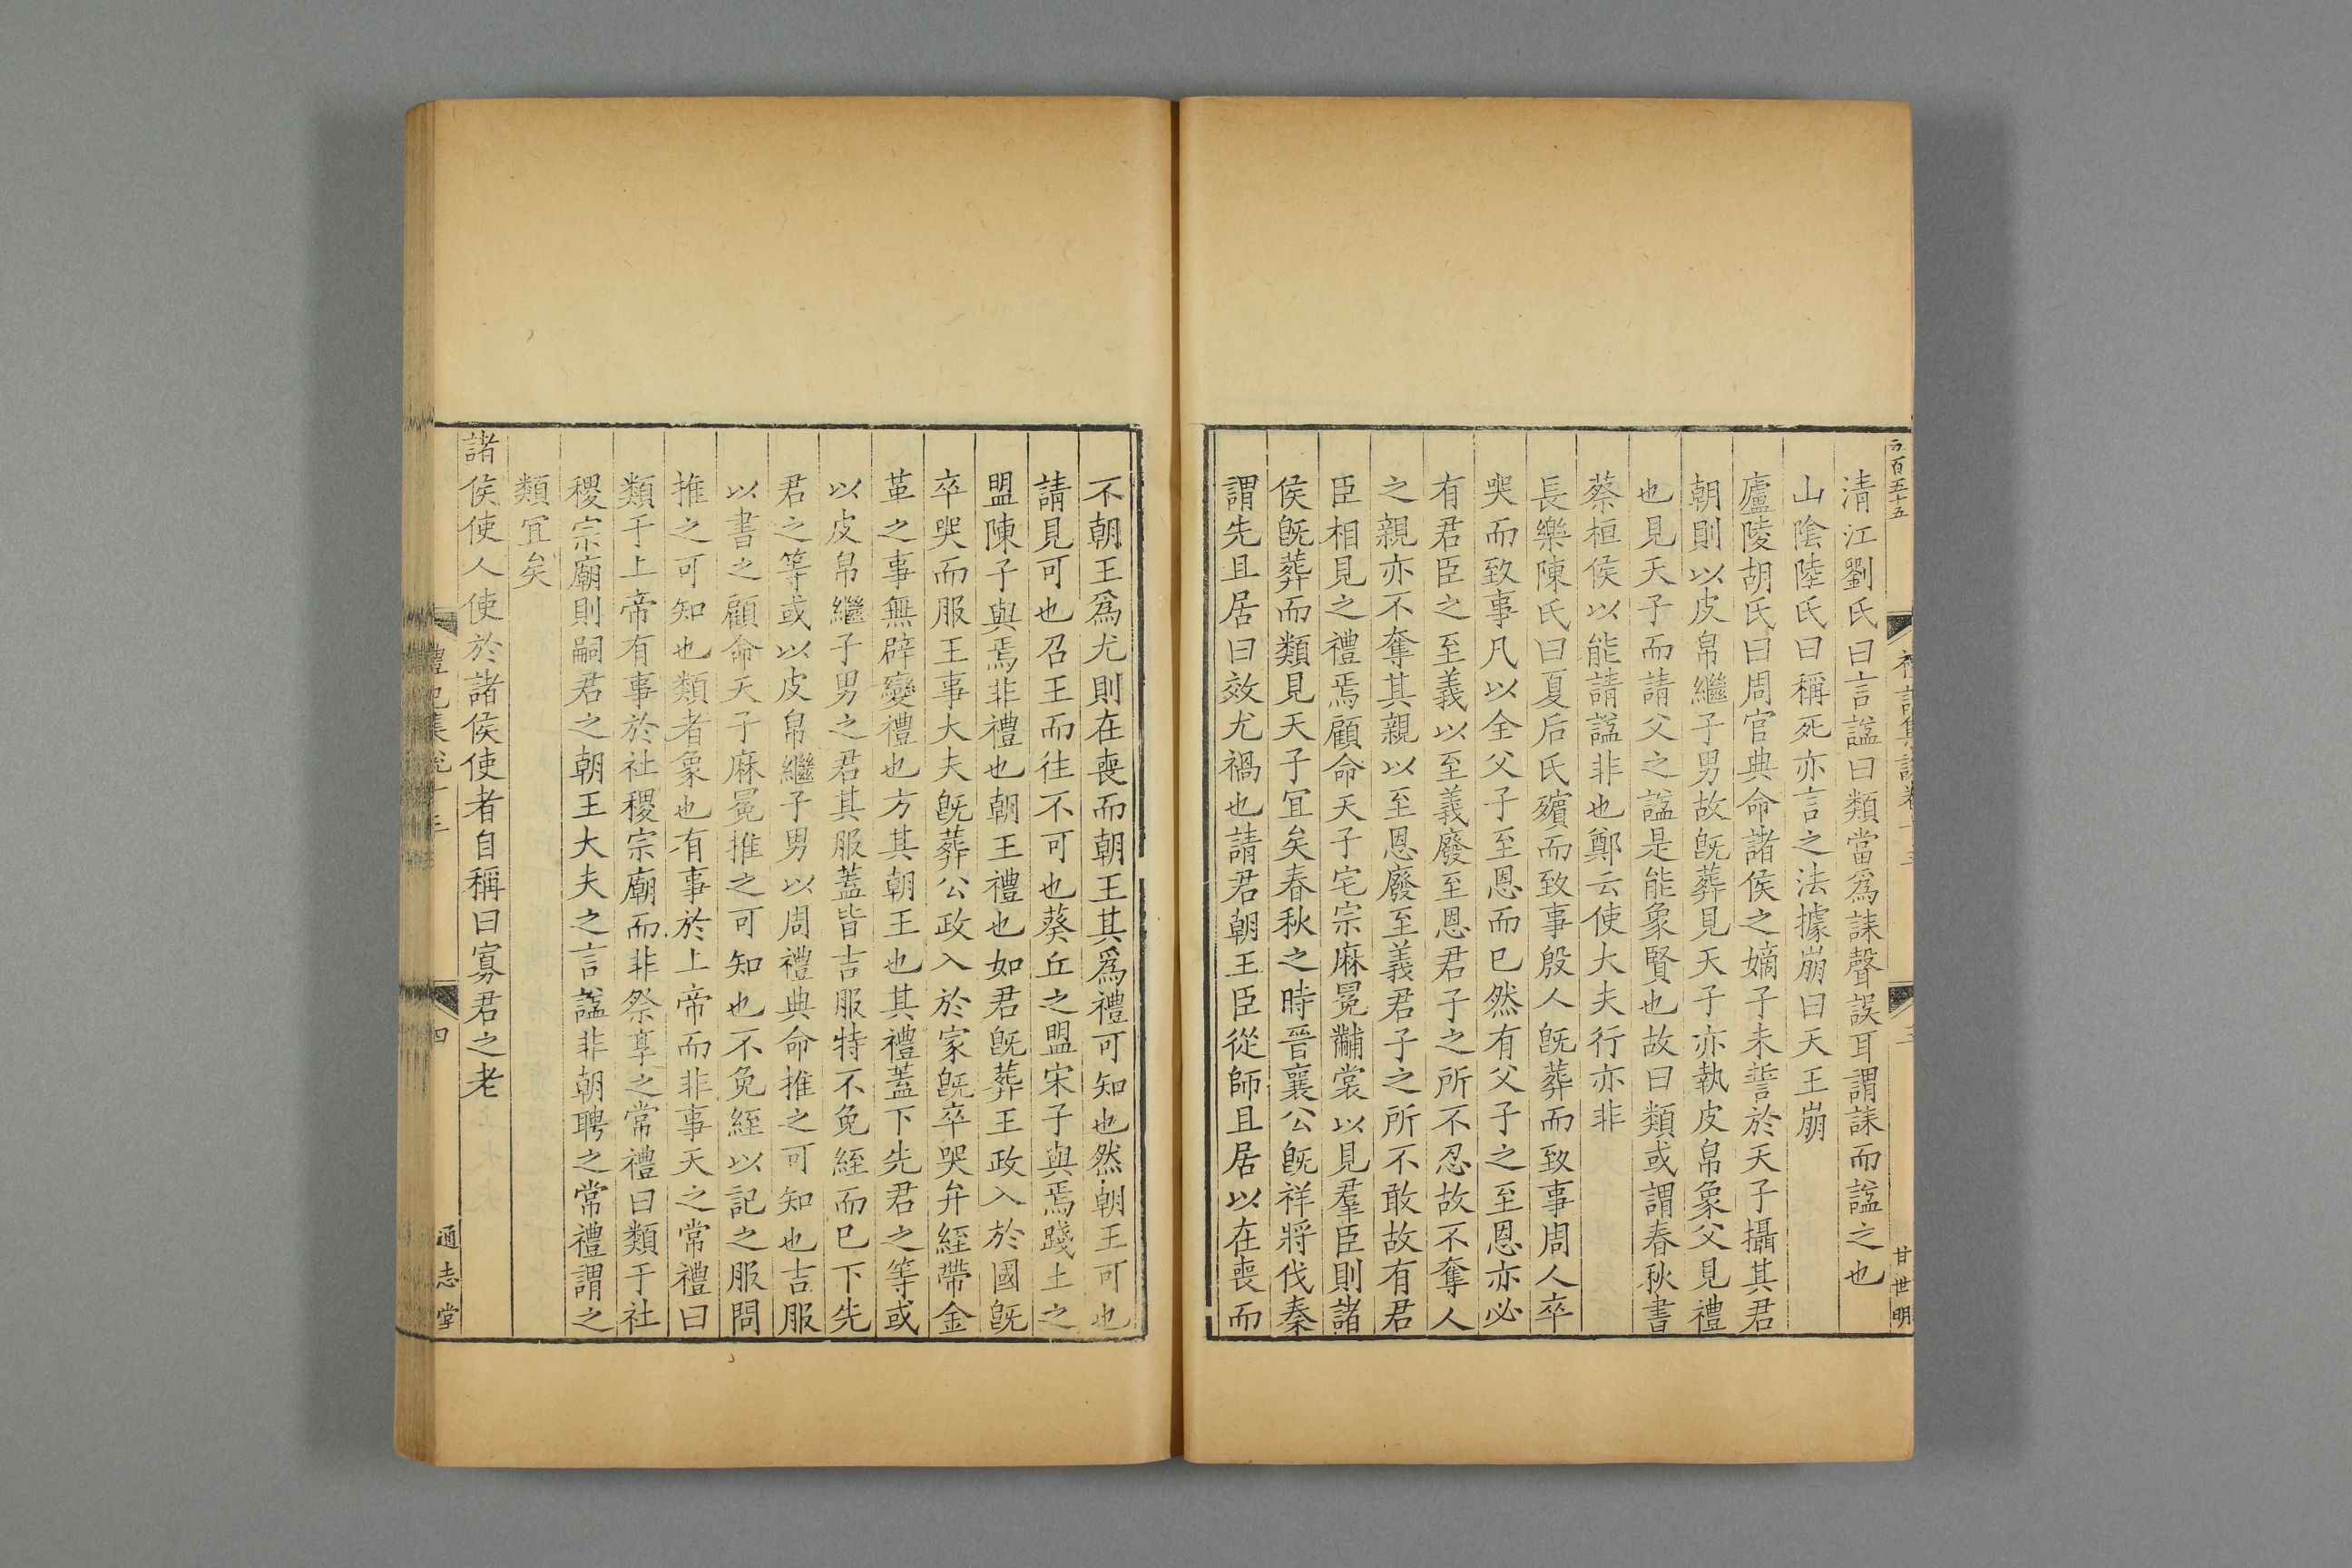 清江劉氏曰言諡曰類當爲誄聲誤耳謂誄而諡之也
山陰陸氏曰稱死亦言之法據崩曰天王崩
廬陵胡氏曰周官典命諸侯之嫡子未誓於天子攝其君
朝則以皮帛繼子男故旣葬見天子亦執皮帛象父見禮
也見天子而請父之諡是能象賢也故曰類或謂春秋書
蔡桓侯以能請諡非也鄭云使大夫行亦非
長樂陳氏曰夏后氏殯而致事殷人旣葬而致事周人卒
哭而致事凡以全父子至恩而已然有父子之至恩亦必
有君臣之至義以至義廢至恩君子之所不忍故不奪人
之親亦不奪其親以至恩廢至義君子之所不敢故有君
臣相見之禮焉顧命天子宅宗麻冕黼裳以見羣臣則諸
侯旣葬而類見天子宜矣春秋之時晉襄公旣祥將伐秦
謂先且居曰效尤禍也請君朝王臣從師且居以在喪而
不朝王爲尤則在喪而朝王其爲禮可知也然朝王可也
請見可也召王而往不可也葵丘之盟宋子與焉踐土之
盟陳子與焉非禮也朝王禮也如君旣葬王政入於國旣
卒哭而服王事大夫旣葬公政入於家旣卒哭弁絰帶金
革之事無辟變禮也方其朝王也其禮蓋下先君之等或
以皮帛繼子男之君其服蓋皆吉服特不免絰而已下先
君之等或以皮帛繼子男以周禮典命推之可知也吉服
以書之顧命天子麻冕推之可知也不免絰以記之服問
推之可知也類者象也有事於上帝而非事天之常禮曰
類于上帝有事於社稷宗廟而非祭享之常禮曰類于社
稷宗廟則嗣君之朝王大夫之言諡非朝聘之常禮謂之
類宜矣
諸侯使人使於諸侯使者自稱曰寡君之老
四
通志堂
甘世明